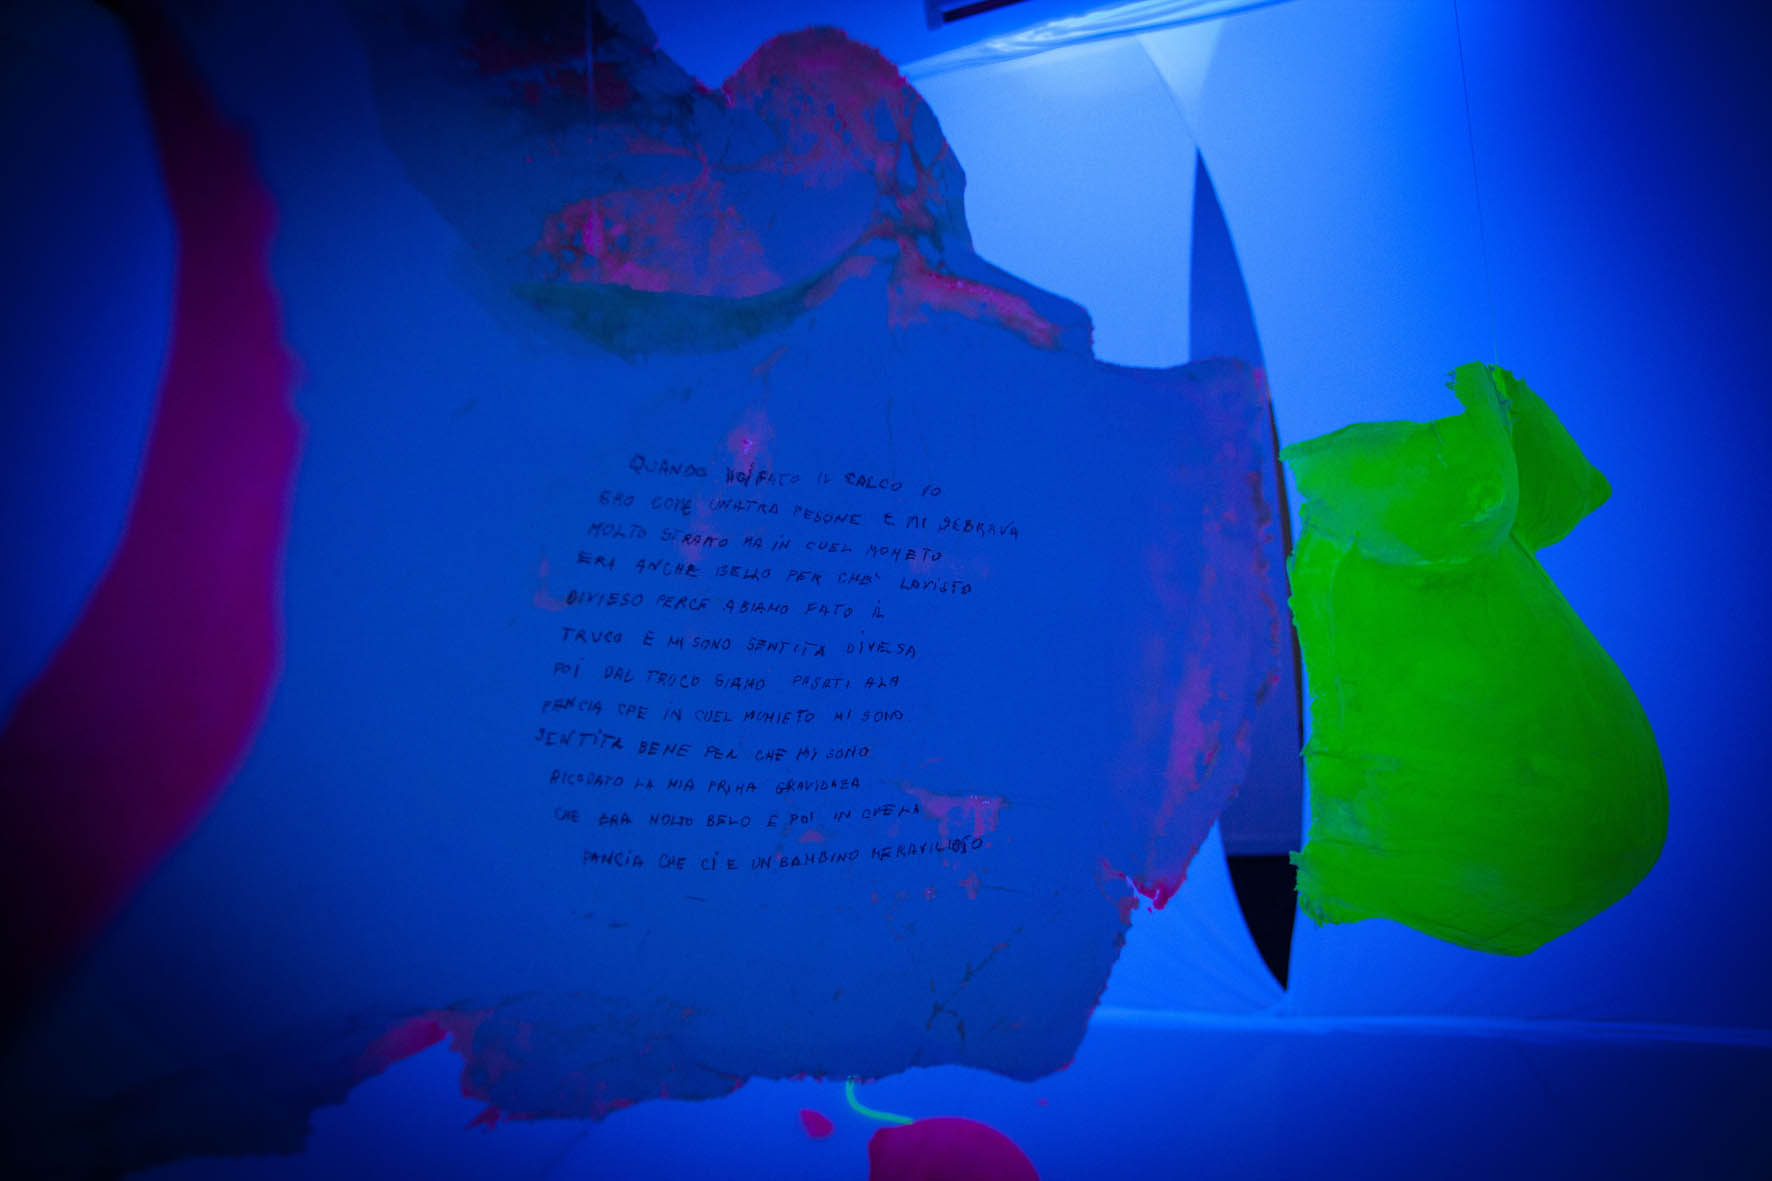 QUANDO HOI FATO IL CALCO IO
ERO COME UNATRA PESONE E MI SEBRAVA
MOLTO STRANO MA IN CUEL MOMETO
ERA ANCHE BELLO PER CHE' LAVISTO
DIVIESO PERCE ABIAMO FATO IL
TRUCO E MI SONO SENTITA DIVESA
POI DAL TRUCO SIAMO PASATI ALA
PANCIA CHE IN CUEL MOMIETO MI SONO
SENTITA BENE PER CHE MI SONO
RICODATO LA MIA PRIMA GRAVIDAZA
CHE ERA MOLTO BELO E POI IN CUELA
PANCIA CHE CI E UN BAMBINO MERAVILIOSO